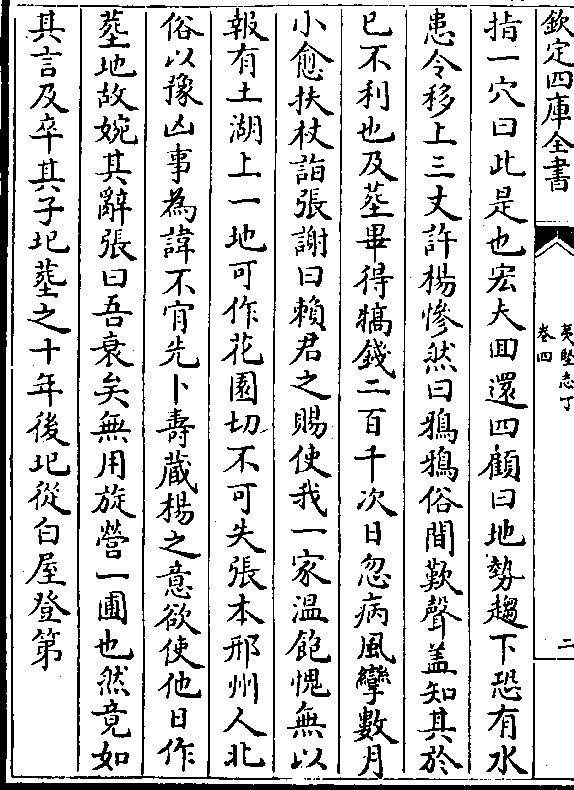 欽定四庫全書
夷堅志丁
卷四
二
指一穴曰此是也宏夫囬還四顧曰地勢趨下恐有水
患令移上三丈許楊慘然曰鵶鵶俗間歎聲葢知其於
已不利也及塟畢得犒錢二百千次日忽病風攣數月
小愈扶杖詣張謝曰賴君之賜使我一家溫飽愧無以
報有土湖上一地可作花園切不可失張本邢州人北
俗以豫凶事為諱不肯先卜壽蔵楊之意欲使他日作
塟地故婉其辭張曰吾衰矣無用旋營一圃也然竟如
其言及卒其子圯塟之十年後圯從白屋登第